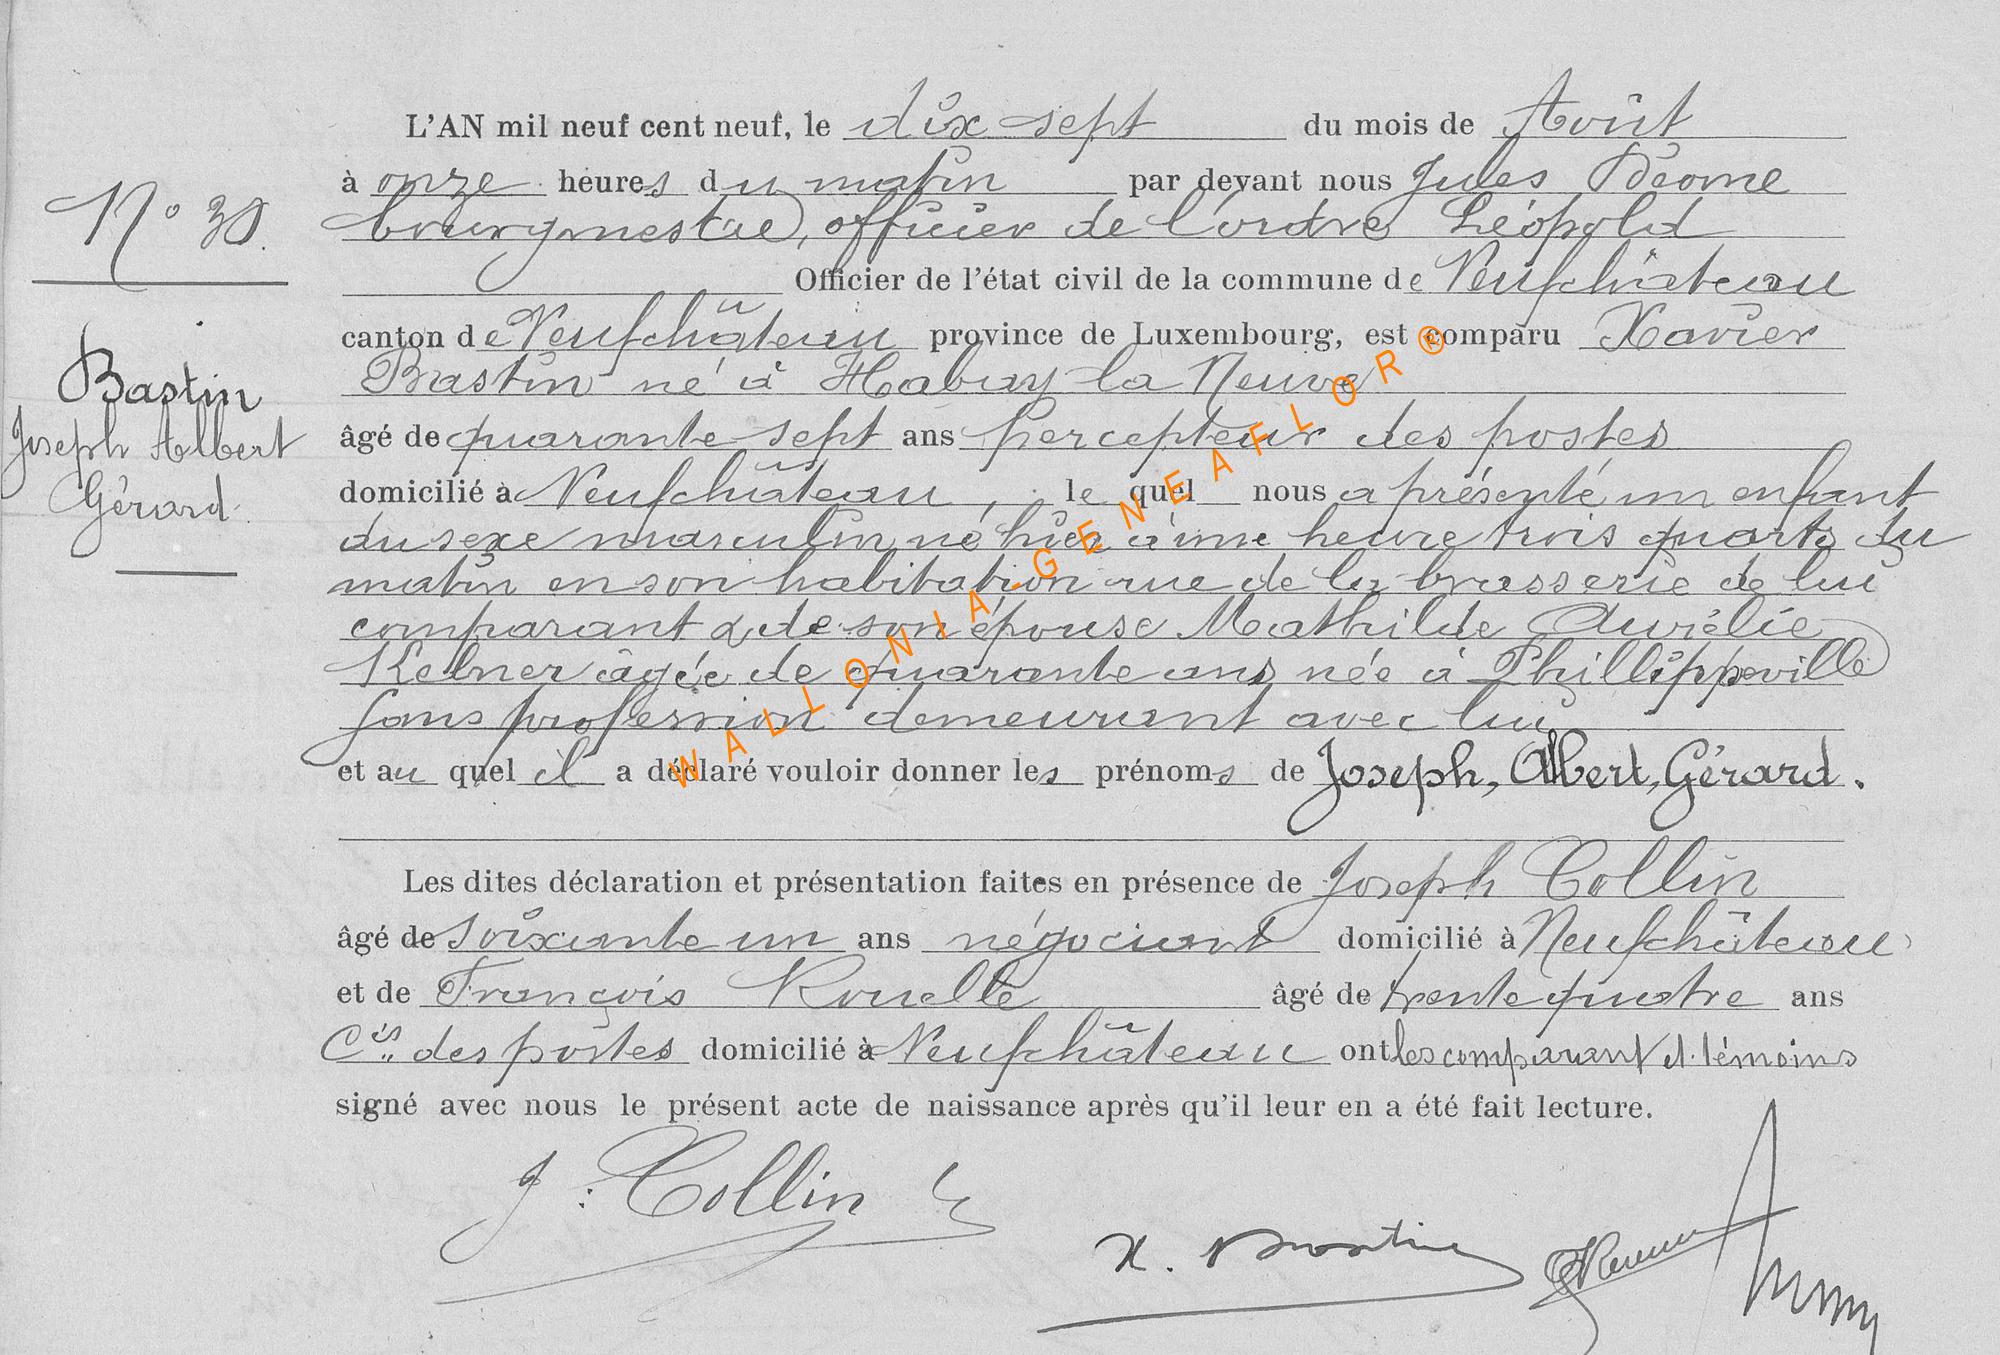 N° 30
Bastin
Joseph Albert
Gérard.
L'AN mil neuf cent neuf, le dix sept du mois de Août
à onze heures du matin par devant nous Jules Déome
bourgmestre, officier de l'ordre Léopold
Officier de l'état civil de la commune de Neufchâteau
canton de Neufchâteau province de Luxembourg, est comparu Xavier
Bastin né à Habay la Neuve
âgé de quarante sept ans percepteur des postes
domicilié à Neufchâteau, le quel nous a présenté un enfant
du sexe masculin né hier à une heure trois quarts du
matin en son habitation rue de la brasserie de lui
comparant & de son épouse Mathilde Aurélie
Kelner âgée de quarante ans née à Phillippeville
sans profession demeurant avec lui
et au quel il a déclaré vouloir donner les prénoms de Joseph, Albert, Gérard.
Les dites déclaration et présentation faites en présence de Joseph Collin
âgé de soixante un ans négociant domicilié à Neufchâteau
et de François Rouelle âgé de trente quatre ans
Cis des postes domicilié à Neufchâteau ont les comparant et témoins
signé avec nous le présent acte de naissance après qu'il leur en a été fait lecture.
J. Collin
X. Bastin
WALLONIA-GENEAFLOR®